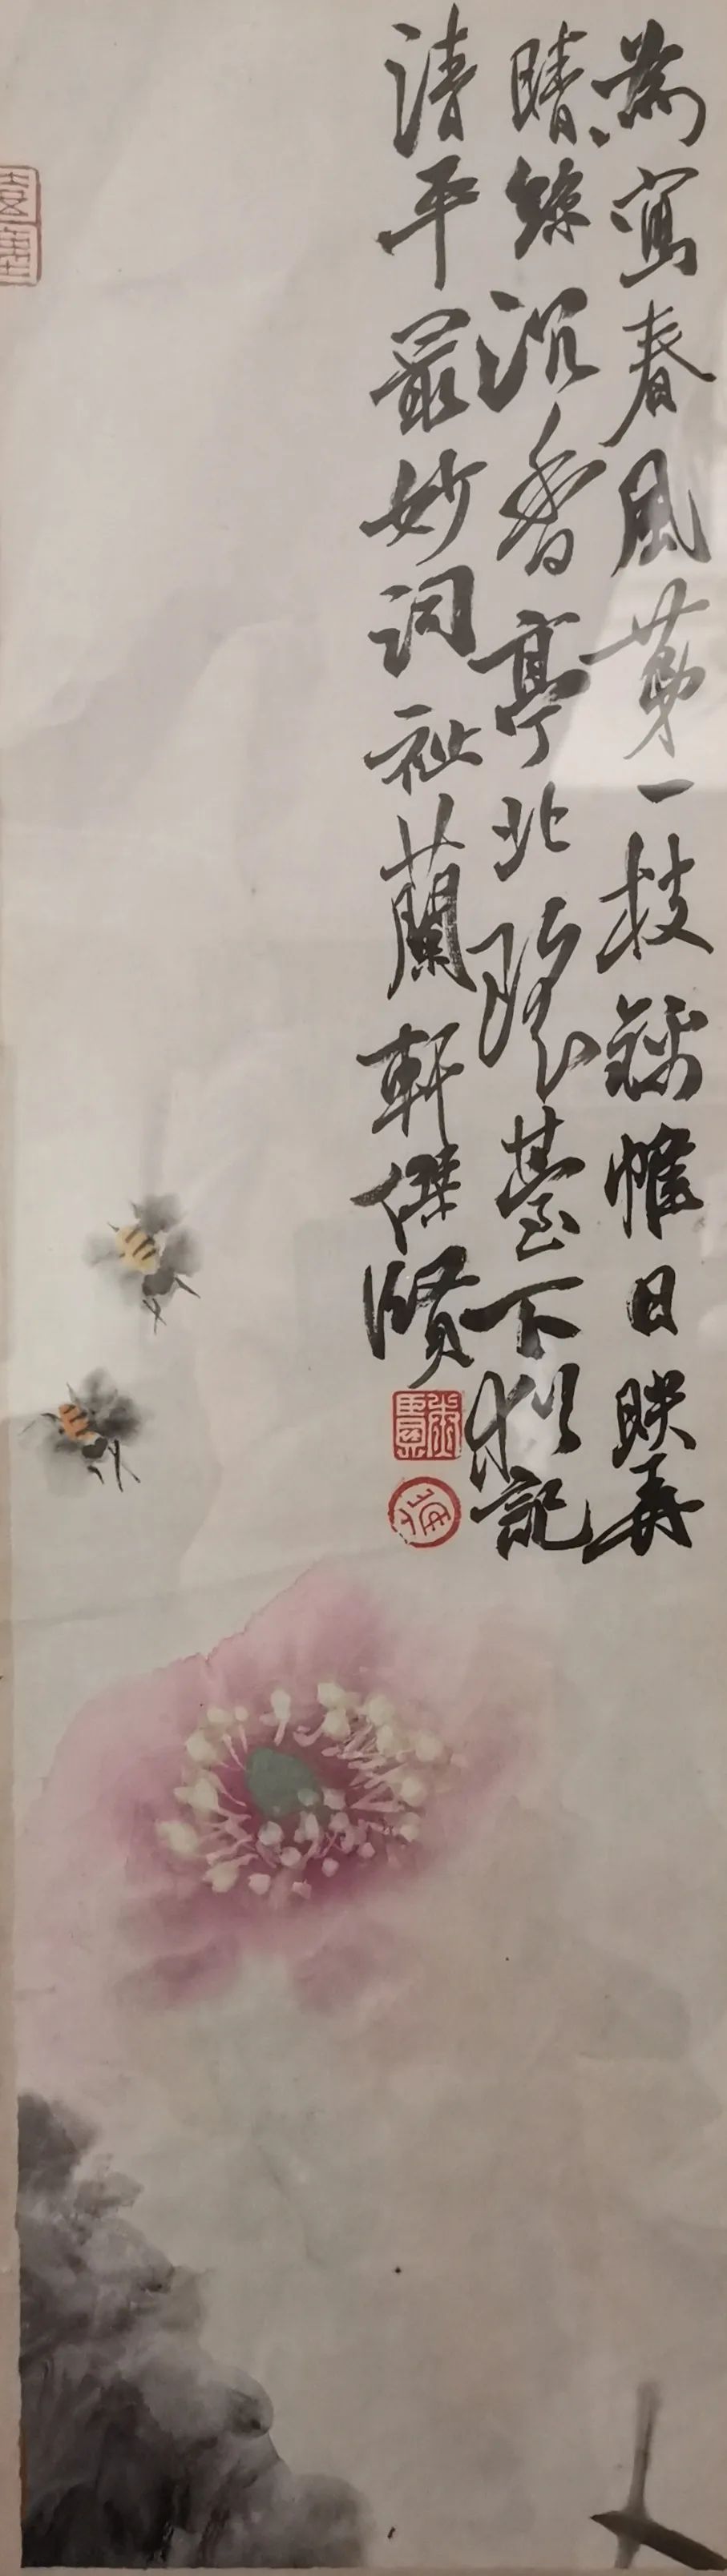 為寫春風第一枝錦帷日映最
晴絲沉香亭北瑤臺下猶記
清平最妙詞祉蘭軒傑賢